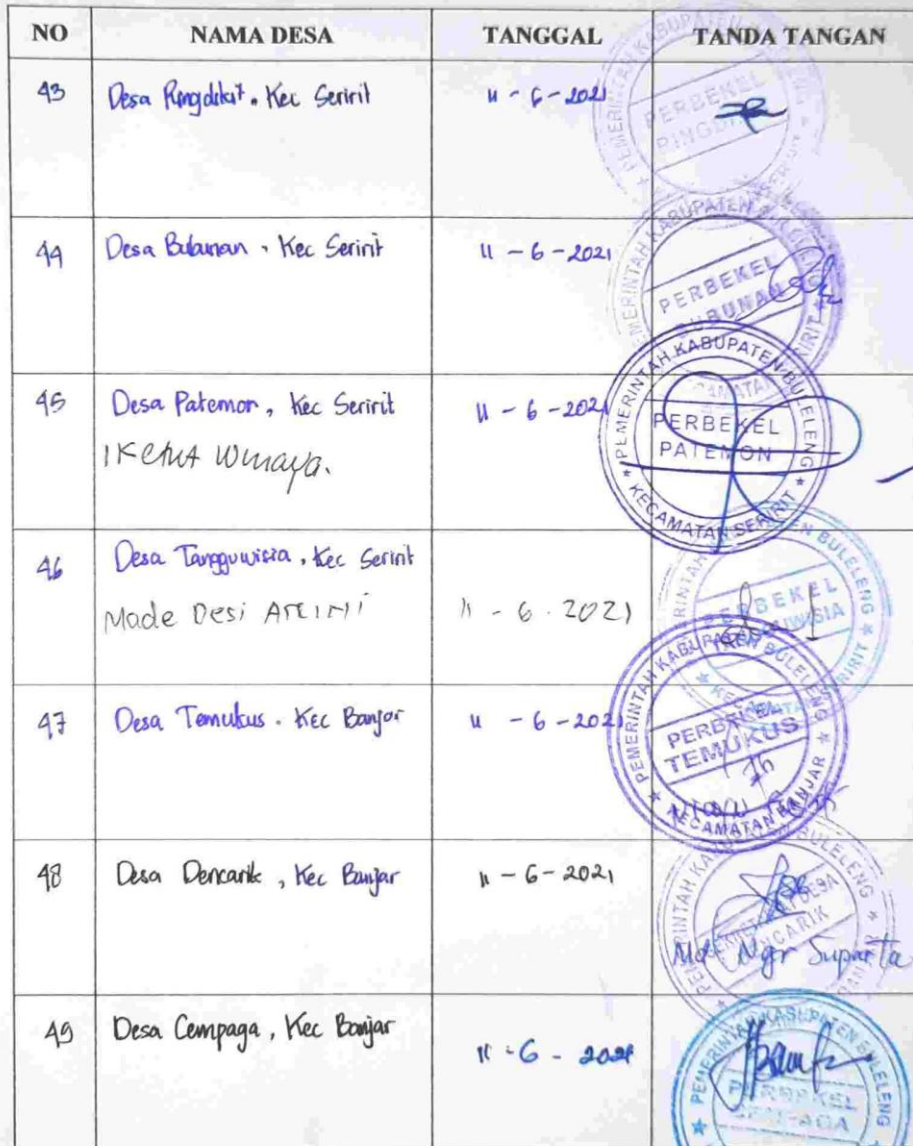 NO NAMA DESA TANGGAL TANDA TANGAN
43 Desa Ringdikit, Kec Seririt 11 - 6 - 2021
PEMERINTAH KABUPATEN
PERBEKEL
44 Desa Bubunan, Kec Seririt 11 - 6 - 2021
PEMERINTAH KABUPATEN BULELENG
PERBEKEL
BUBUNAN
45 Desa Patemon, Kec Seririt 11 - 6 - 2021
I Ketut Winaya.
PEMERINTAH KABUPATEN BULELENG
PERBEKEL
PATEMON
KECAMATAN SERIRIT
46 Desa Tangguwisia, Kec Seririt
Made Desi Arini 11 - 6 - 2021
BULELENG
PERBEKEL
TANGGUWISIA
47 Desa Temukus, Kec Banjar 11 - 6 - 2021
PEMERINTAH KABUPATEN BULELENG
PERBEKEL
TEMUKUS
KECAMATAN BANJAR
48 Desa Dencarik, Kec Banjar 11 - 6 - 2021
BULELENG
DENCARIK
Md Ngr Suparta
49 Desa Cempaga, Kec Banjar 11 - 6 - 2021
PEMERINTAH KABUPATEN BULELENG
PERBEKEL
CEMPAGA